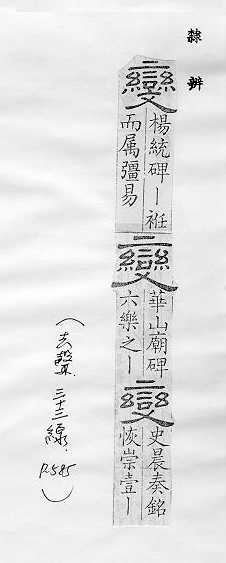 隸辨
變
楊統碑｜袵
而属彊易
變
華山廟碑
六樂之｜
變
史晨奏銘
恢崇壹｜
(去聲 三十三線. P.585)